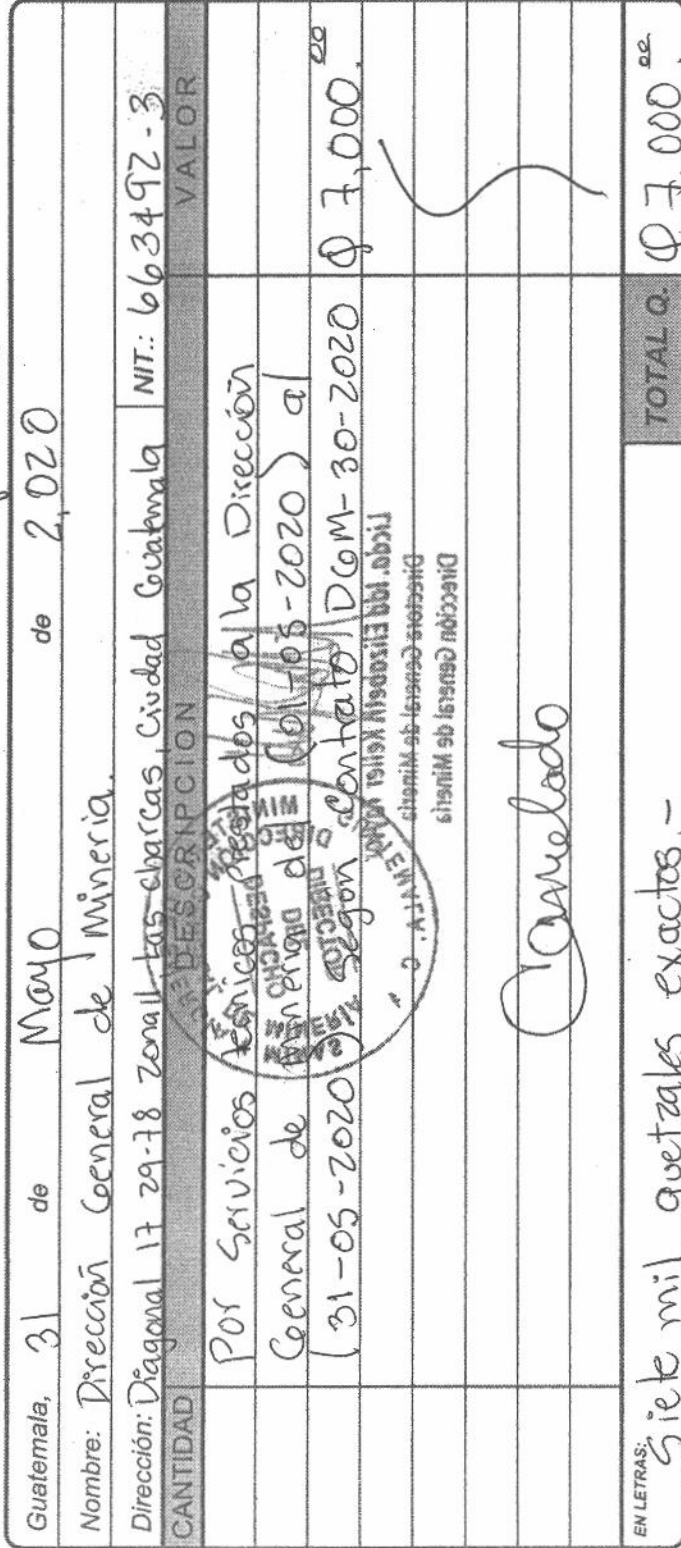 Guatemala, 31 de Mayo de 2,020
Nombre: Dirección General de Minería.
Dirección: Diagonal 17 29-78 zona 11 Las charcas, Ciudad Guatemala NIT.: 663492-3
CANTIDAD DESCRIPCION VALOR
Por Servicios técnicos prestados a la Dirección
General de Minería del (01-05-2020) al
(31-05-2020) según contrato DGM-30-2020 Q 7,000.00
Licda. Ida Elizabeth Keller
Directora General de Minería
Dirección General de Minería
Cancelado
EN LETRAS: Siete mil quetzales exactos.-
TOTAL Q. Q 7,000.00